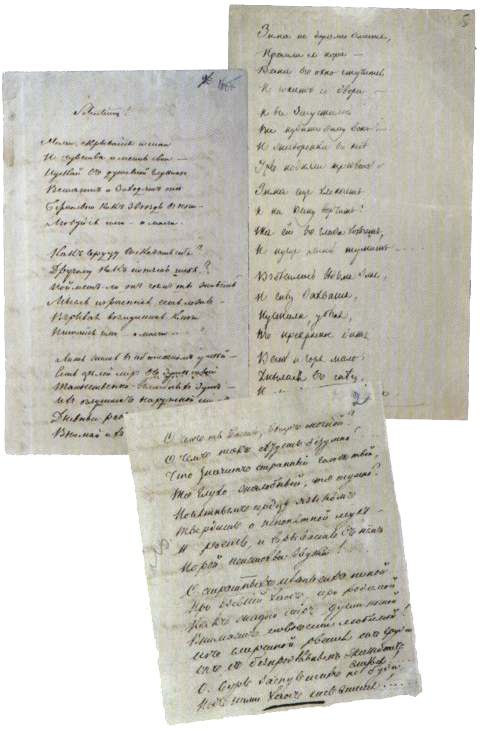 Silentium!
Молчи, скрывайся и таи
И чувства и мечты свои —
Пускай въ душевной глубинѣ
Встаютъ и заходятъ онѣ
Безмолвно какъ звѣзды въ ночи —
Любуйся ими — и молчи.
Какъ сердцу высказать себя?
Другому какъ понять тебя?
Пойметъ ли онъ чѣмъ ты живешь
Мысль изреченная есть ложь —
Взрывая возмутишь ключи
Питайся ими — и молчи —
Лишь жить въ самомъ себѣ умѣй —
Есть цѣлый міръ въ душѣ твоей
Таинственно волшебныхъ думъ —
Ихъ оглушитъ наружный шумъ
Дневные
Внимай
5
Зима не даромъ злится,
Прошла ея пора —
Весна въ окно стучится
И гонитъ со двора —
И все засуетилось
Все нудитъ Зиму вонъ —
И жаворонки въ небѣ
Ужъ подняли трезвонъ
Зима еще хлопочетъ
И на Весну ворчитъ:
Та ей въ глаза хохочетъ,
И пуще лишь шумитъ....
Взбѣсилась вѣдьма злая,
И снѣгу захватя,
Пустила, убѣгая,
Въ прекрасное дитя
Веснѣ и горя мало:
Умылася въ снѣгу,
И
2
О чемъ ты воешь, вѣтръ ночной?
О чемъ такъ сѣтуешь безумно?
Что значитъ странный голосъ твой,
То глухо жалобный, то шумно?
Понятнымъ сердцу языкомъ
Твердишь о непонятной мукѣ —
И роешь, и взрываешь въ немъ
Порой неистовые звуки!
О страшныхъ пѣсень сихъ не пой
Про древній хаосъ, про родимой
Какъ жадно міръ души ночной
Внимаетъ повѣсти любимой!
Изъ смертной рвется онъ груди
Онъ съ безпредѣльнымъ
О, бурь заснувшихъ не буди
Подъ ними хаосъ шевелится!....